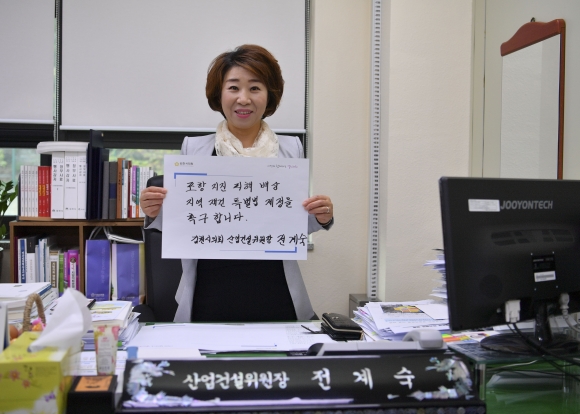 포항 지진 피해 배상
지역 재건 특별법 제정을
촉구합니다.
김천시의회 산업건설위원장 전계숙
JOOYONTECH
산업건설위원장 전계숙